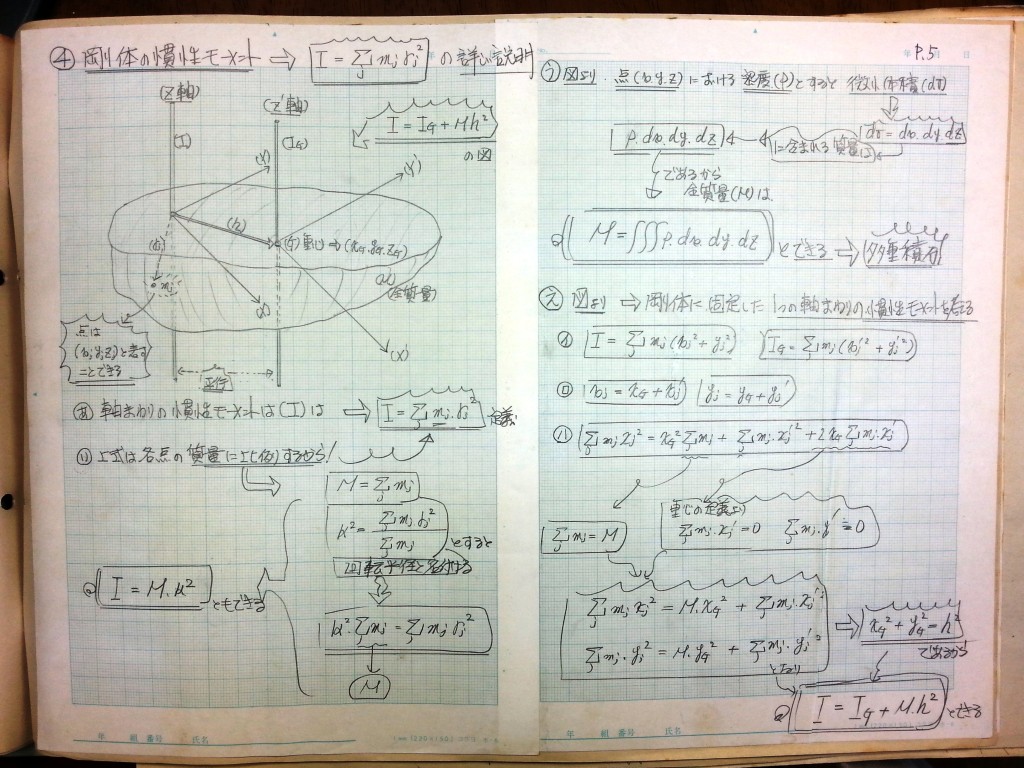 ④ 剛体の慣性モーメント ⇒ I = Σj mj rj² の詳しい説明
(Z軸) (Z'軸)
I = IG + Mh²
の図
(I) (IG)
(Y) (Y')
(h)
(G)重心 → (xG, yG, zG)
(rj)
mj
(M)
(全質量)
(X)
(X')
点は
(x, y, z)と表す
ことできる
平行
あ 軸まわりの慣性モーメントは(I)は ⇒ I = Σj mj rj² 定義
い 上式は各点の質量に比例するから!
M = Σj mj
k² = Σj mj rj² / Σj mj
とすると
回転半径と名付ける
I = M.k² ともできる
k².Σj mj = Σj mj rj²
M
P.5
う 図より. 点(x,y,z)における密度(ρ)とすると 微小体積(dv)
dv = dx.dy.dz
に含まれる質量は
ρ.dx.dy.dz
であるから
全質量(M)は
M = ∭ρ.dx.dy.dz とできる ⇒ 多重積分
え 図より ⇒ 剛体に固定した1つの軸まわりの慣性モーメントを考える
イ I = Σj mj(xj² + yj²) IG = Σj mj(xj'² + yj'²)
ロ xj = xG + xj' yj = yG + yj'
ハ Σj mj xj² = xG² Σj mj + Σj mj.xj'² + 2xG Σj mj.xj'
重心の定義より
Σj mj = M Σj mj.xj' = 0 Σj mj.yj' = 0
Σj mj xj² = M.xG² + Σj mj.xj'²
xG² + yG² = h²
であるから
Σj mj.yj² = M.yG² + Σj mj.yj'²
となり
I = IG + M.h² とできる
年 組 番号 氏名
年 組 番号 氏名